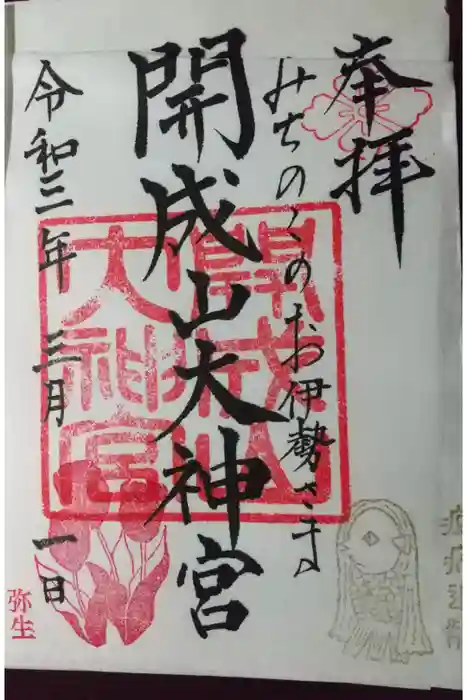 奉拝
みちのくのお伊勢さま
開成山大神宮
令和三年 三月 一日
開成山大神宮
弥生